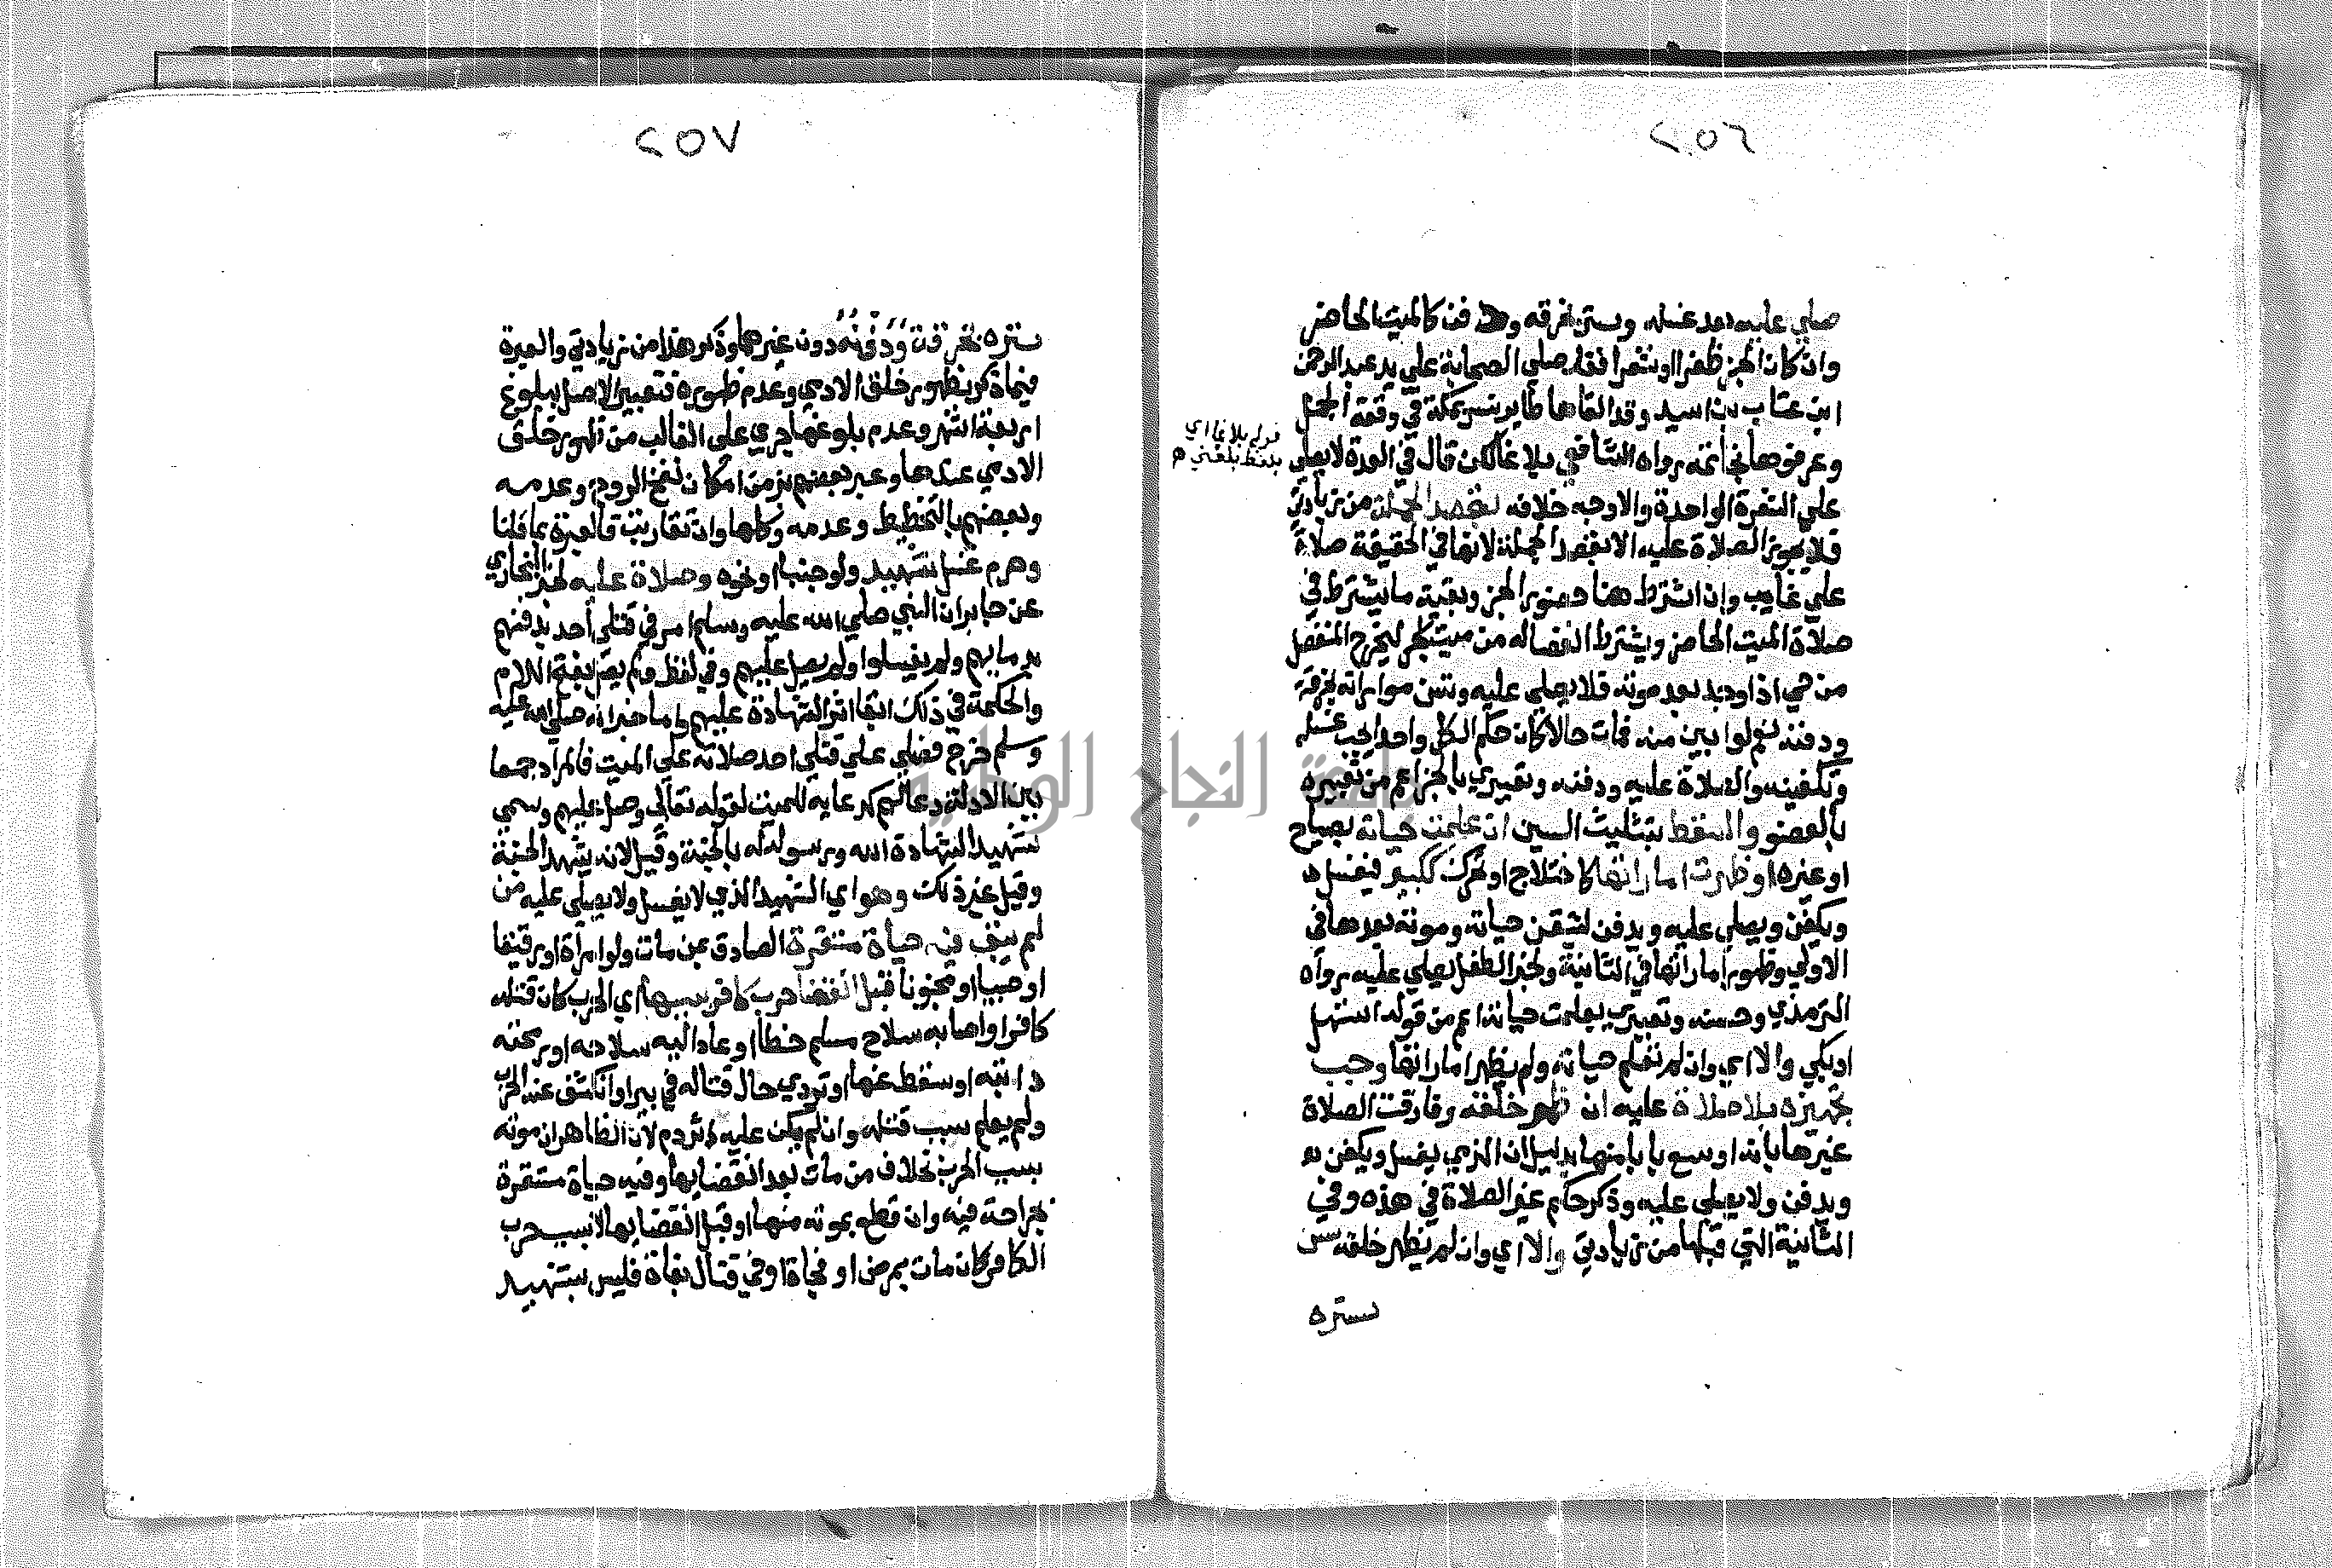 ٢٥٦
صلي عليه بعد غسله وستر بخرقه ودفن كالميت الحاضر
وان كان الجز ظفرا او شعرا فقد صلي الصحابة علي يد عبد الرحمن
ابن عتاب بن اسيد وقد القاها طاير نسر بمكة في وقعة الجمل
وعرفوها بخاتمه رواه الشافعي بلاغا لكن قال في العدة لا يصلي
قوله بلاغا اي
بلفظ بلغني هـ
علي الشعرة الواحدة والاوجه خلافه بقصد الجملة من زيادتي
فلا يجوز الصلاة عليه الا بقصد الجملة لانها في الحقيقة صلاة
علي غايب وان اشترط هنا حضور الجز وبقية ما يشترط في
صلاة الميت الحاضر ويشترط انفصاله من ميت ليخرج المنفصل
من حي اذا وجد بعد موته فلا يصلي عليه وتسن مواراته بخرقة
ودفنه نعم لو ابين منه فمات حالا كان حكم الكل واحدا يجب غسله
وتكفينه والصلاة عليه ودفنه وتعبيري بالجز اعم من تعبيره
بالعضو والسقط بتثليث السين ان علمت حياته بصياح
او غيره او ظهرت اماراتها كاختلاج او تحرك ككبير فيغسل
ويكفن ويصلي عليه ويدفن لتيقن حياته وموته بعدها في
الاولي وظهور اماراتها في الثانية ولخبر الطفل يصلي عليه رواه
الترمذي وحسنه وتعبيري بعلمت حياته اعم من قوله استهل
او بكي والا اي وان لم تعلم حياته ولم يظهر اماراتها وجب
تجهيزه بلا صلاة عليه ان ظهر خلقه وفارقت الصلاة
غيرها بانه اوسع بابا منها بدليل ان الذمي يغسل ويكفن
ويدفن ولا يصلي عليه وذكر حكم غير الصلاة في هذه وفي
الثانية التي قبلها من زيادتي والا اي وان لم يظهر خلقه سن
ستره
٢٥٧
ستره بخرقة ودفنه دون غيرهما وذكر هذا من زيادتي والعبرة
فيما ذكر بظهور خلق الادمي وعدم ظهوره فتعبير الاصل ببلوغ
اربعة اشهر وعدم بلوغها جري علي الغالب من ظهور خلق
الادمي عندها وعبر بعضهم بزمن امكان نفخ الروح وعدمه
وبعضهم بالتخطيط وعدمه وكلها وان تقاربت فالعبرة بما قلنا
وحرم غسل شهيد ولو جنبا او نحوه وصلاة عليه لخبر البخاري
عن جابر ان النبي صلي الله عليه وسلم امر في قتلي أحد بدفنهم
بدمايهم ولم يغسلوا ولم يصل عليهم وفي لفظ ولم يصل بفتح اللام
والحكمة في ذلك ابقا اثر الشهادة عليهم واما خبر انه صلي الله عليه
وسلم خرج فصلي علي قتلي احد صلاته علي الميت فالمراد جمعا
بين الادلة دعا لهم كدعايه للميت لقوله تعالي وصل عليهم وسمي
شهيدا لشهادة الله ورسوله له بالجنة وقيل لانه يشهد الجنة
وقيل غير ذلك وهو اي الشهيد الذي لا يغسل ولا يصلي عليه من
لم يبق فيه حياة مستقرة الصادق بمن مات ولو امراة او رقيقا
او صبيا او مجنونا قبل انقضا حرب كافر بسببها اي الحرب كان قتله
كافر او اصابه سلاح مسلم خطأ او عاد اليه سلاحه او رمحته
دابته او سقط عنها او تردي حال قتاله في بير او انكشف عند الحرب
ولم يعلم سبب قتله وان لم يكن عليه اثر دم لان الظاهر ان موته
بسبب الحرب بخلاف من مات بعد انقضايها وفيه حياة مستقرة
بجراحة فيه وان قطع بموته منها او قبل انقضايها لا بسبب حرب
الكافر كان مات بمرض او فجاة او في قتال بغاة فليس بشهيد